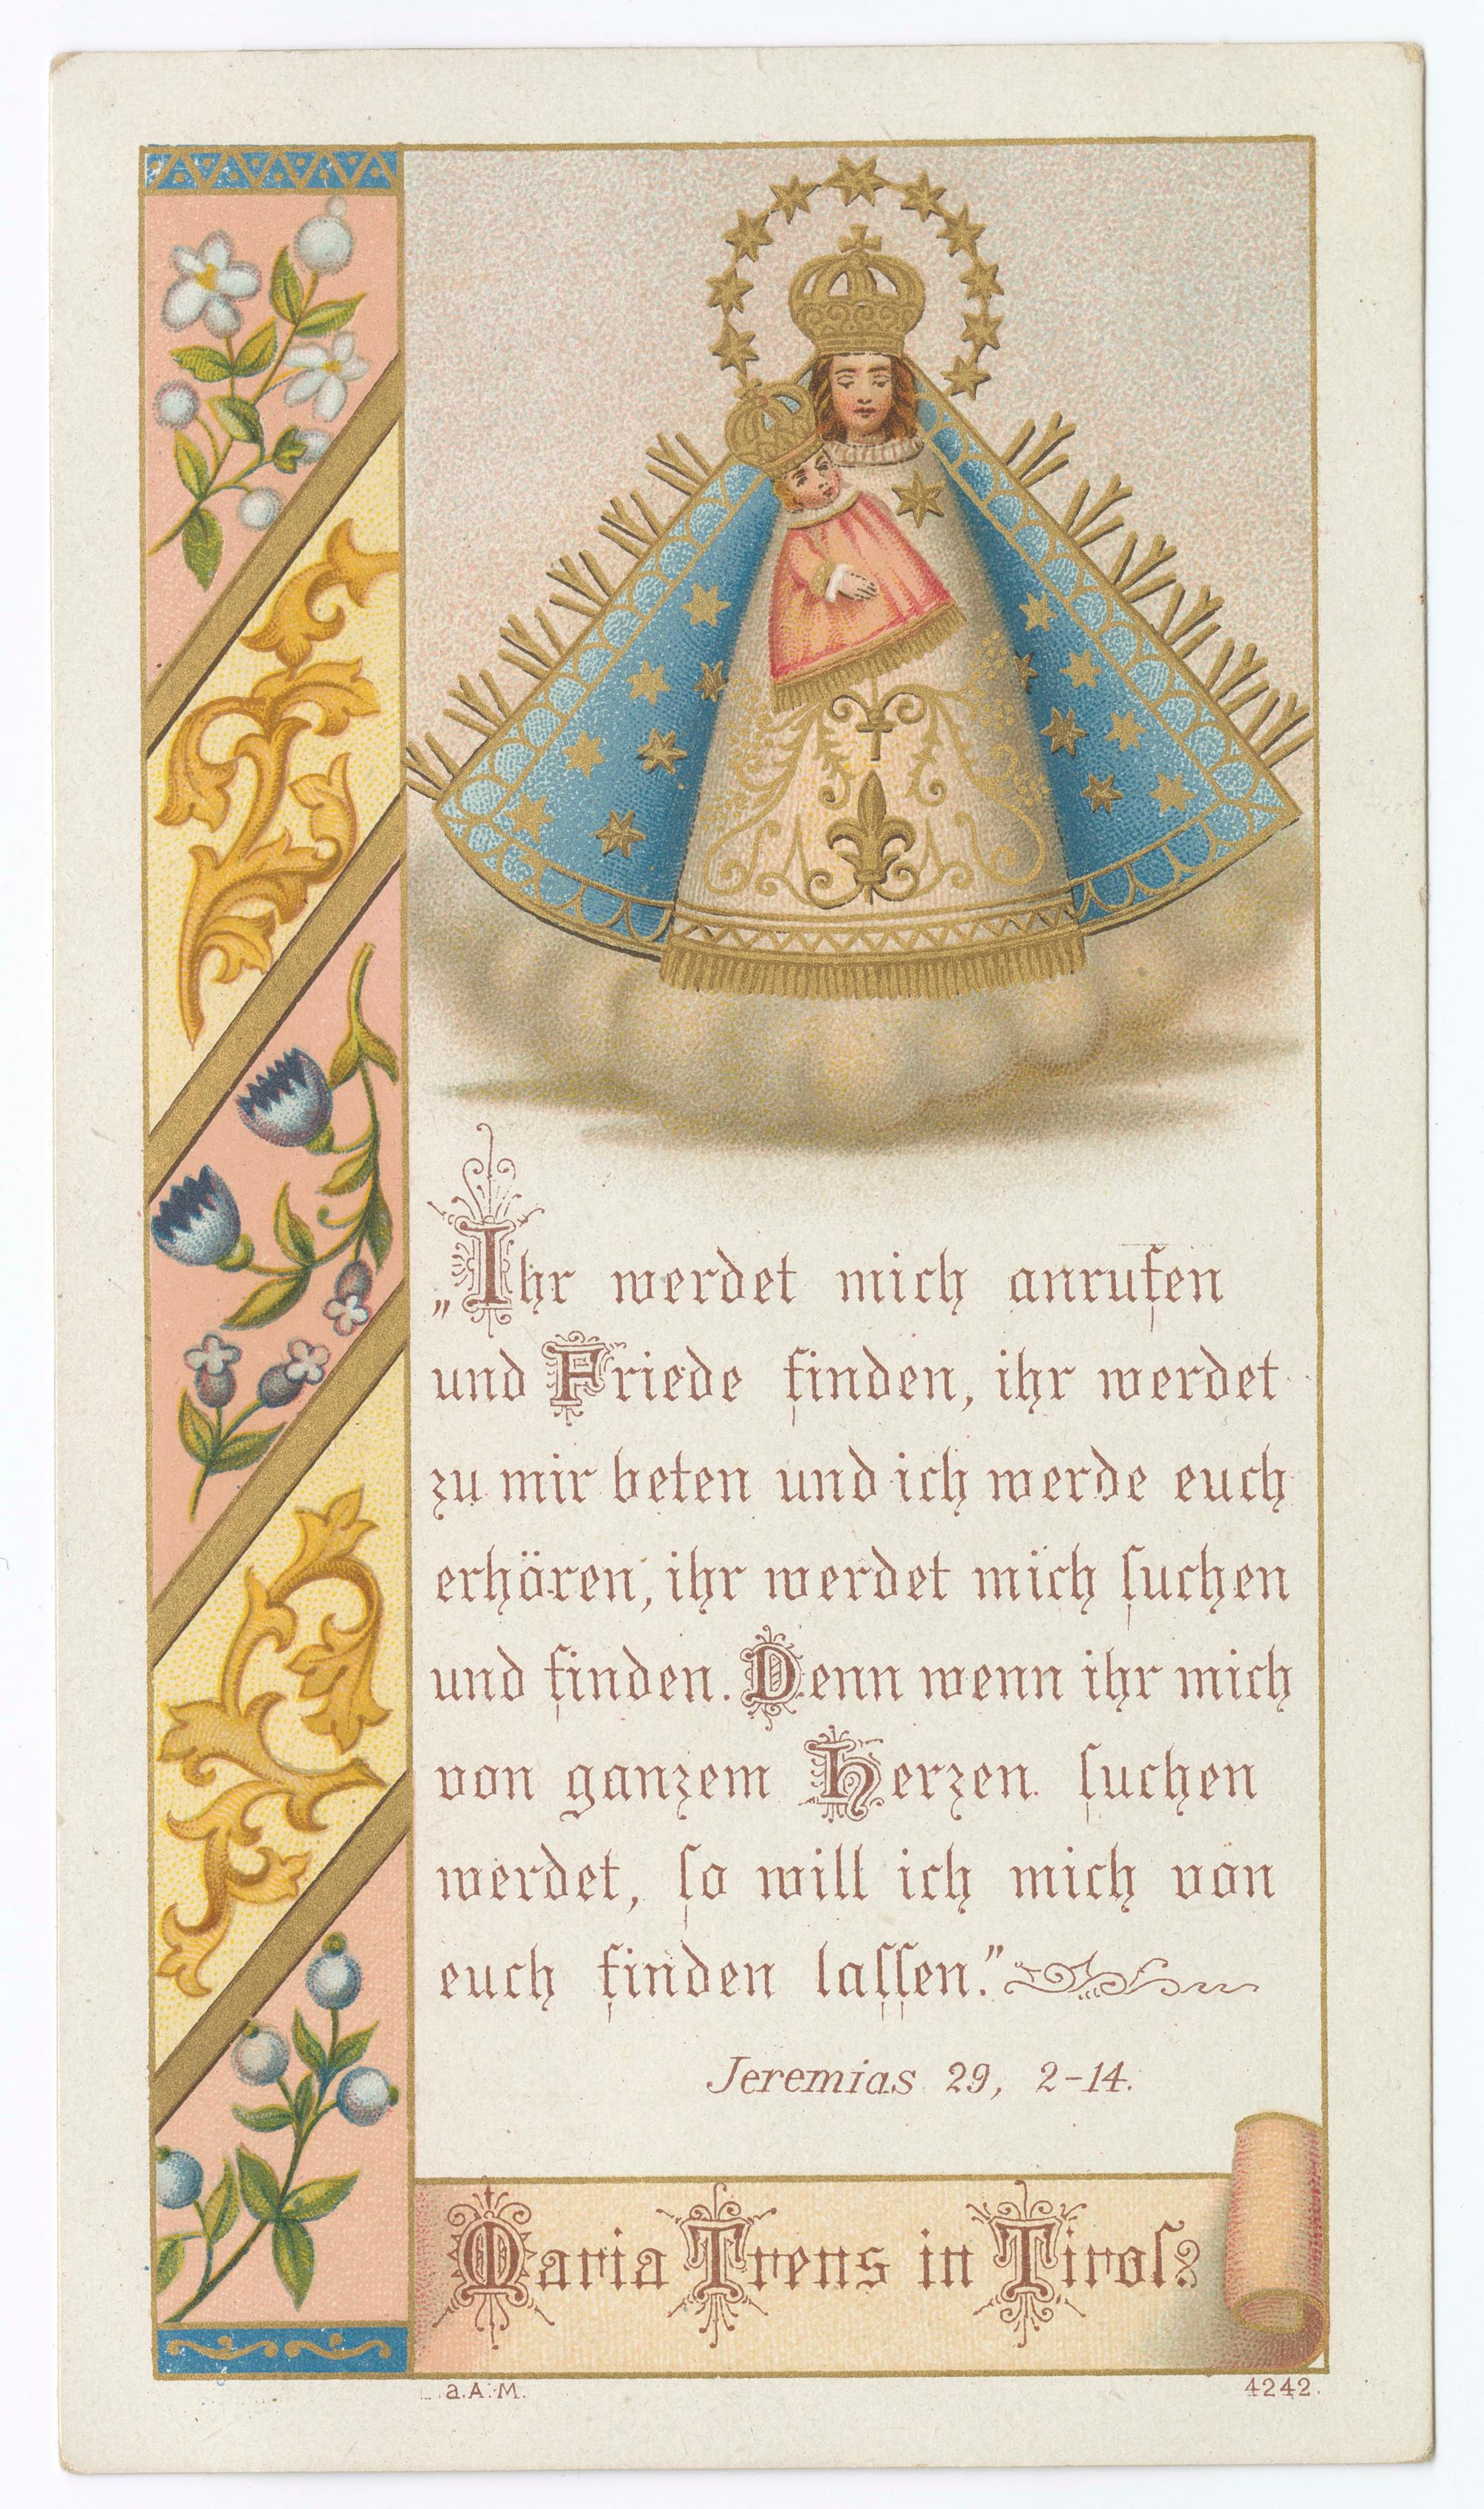 „Ihr werdet mich anrufen
und Friede finden, ihr werdet
zu mir beten und ich werde euch
erhören, ihr werdet mich ſuchen
und finden. Denn wenn ihr mich
von ganzem Herzen ſuchen
werdet, ſo will ich mich von
euch finden laſſen.”
Jeremias 29, 2-14.
Maria Trens in Tirol
a.A.M.
4242.